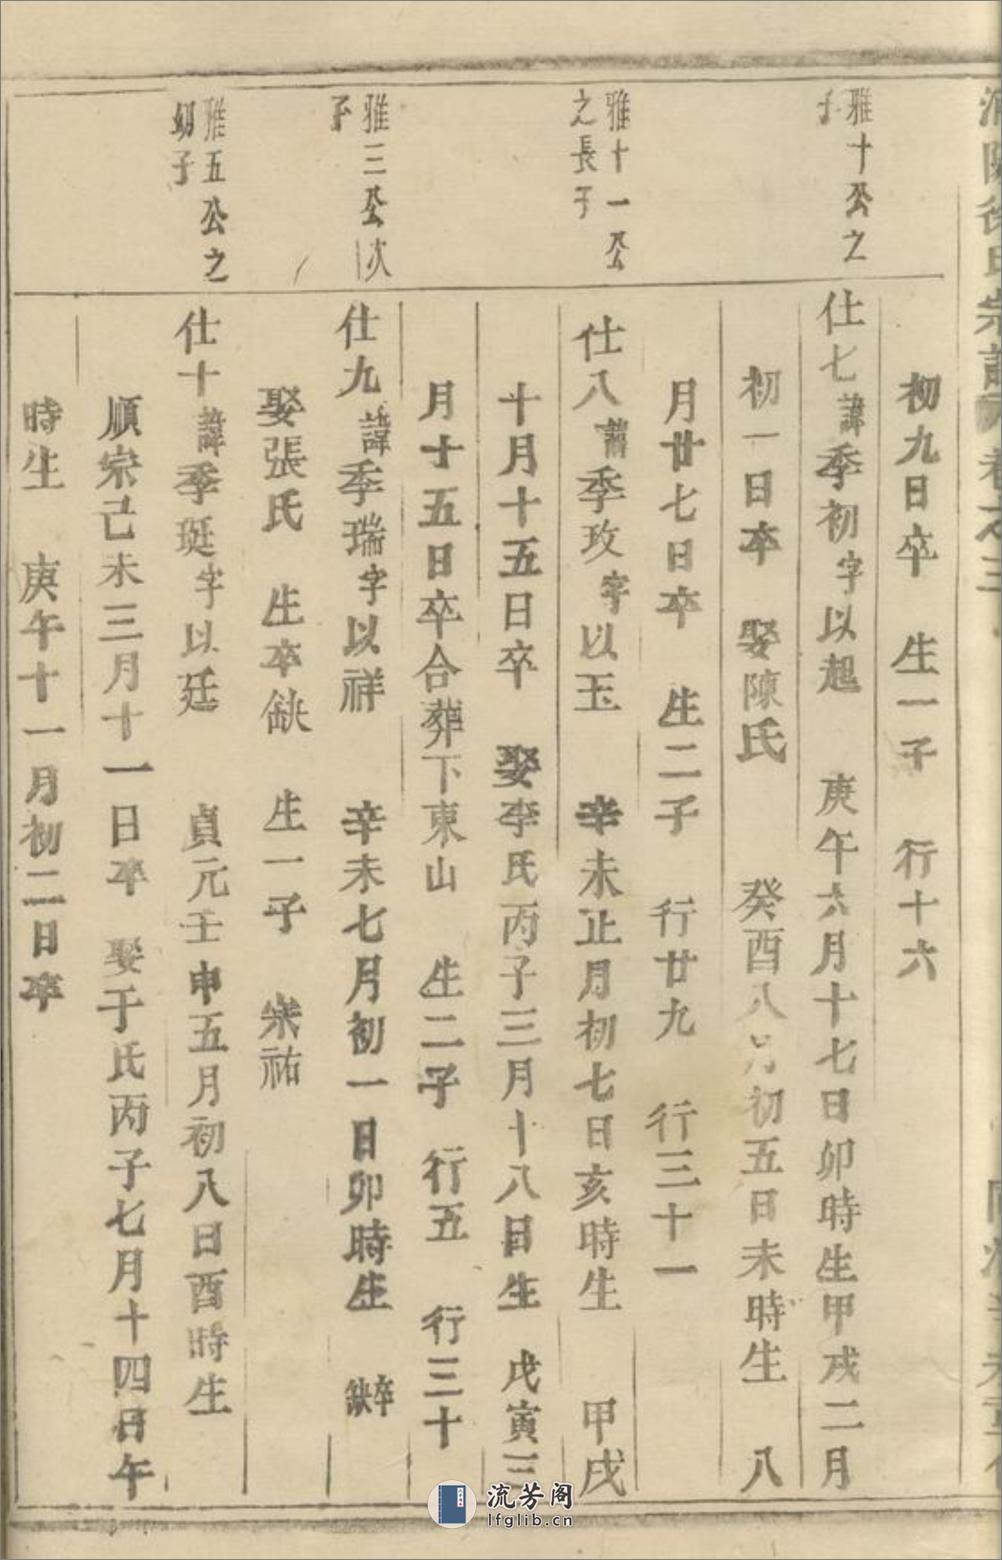 宗
卷之三
初九日卒 生一子 行十六
雅十公之
子
仕七諱季初字以起 庚午六月十七日卯時生甲戌二月
初一日卒 娶陳氏 癸酉八月初五日未時生 八
月廿七日卒 生二子 行廿九 行三十一
雅十一公
之長子
仕八諱季玫字以玉 辛未正月初七日亥時生 甲戌
十月十五日卒 娶李氏丙子三月十八日生 戊寅三
月十五日卒合葬下東山 生二子 行五 行三十
雅三公次
子
仕九諱季瑞字以祥 辛未七月初一日卯時生 卒缺
娶張氏 生卒缺 生一子 崇祐
雅五公之
幼子
仕十諱季珽字以廷 貞元壬申五月初八日酉時生
順宗己未三月十一日卒 娶于氏丙子七月十四日午
時生 庚午十一月初二日卒
流芳阁
lfglib.cn